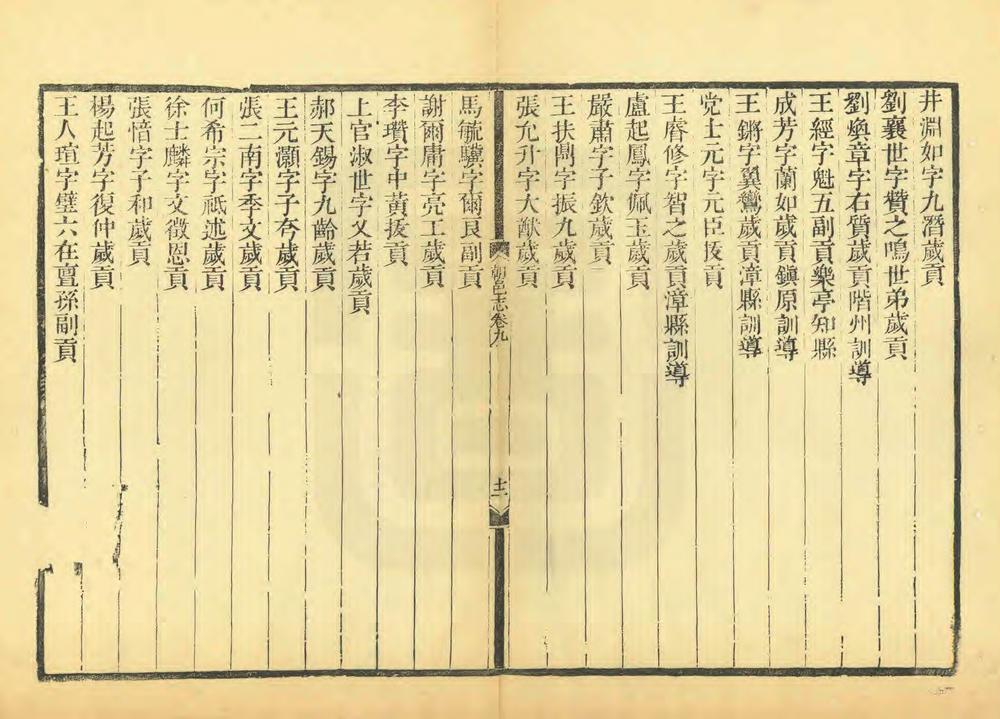 井淵如字九潛歲貢
劉襄世字贊之鳴世弟歲貢
劉煥章字右質歲貢階州訓導
王經字魁五副貢樂亭知縣
成芳字蘭如歲貢鎭原訓導
王鏘字翼鸞歲貢漳縣訓導
党士元字元臣拔貢
王睿修字智之歲貢漳縣訓導
盧起鳳字佩玉歲貢
嚴肅字子欽歲貢
王扶鼎字振九歲貢
張允升字大猷歲貢
朝邑志卷九
十二
馬毓驥字爾良副貢
謝爾庸字亮工歲貢
李瓚字中黃拔貢
上官淑世字乂若歲貢
郝天錫字九齡歲貢
王元灝字子夸歲貢
張二南字季文歲貢
何希宗字祗述歲貢
徐士麟字文徵恩貢
張愔字子和歲貢
楊起芳字復仲歲貢
王人瑄字璧六在亶孫副貢